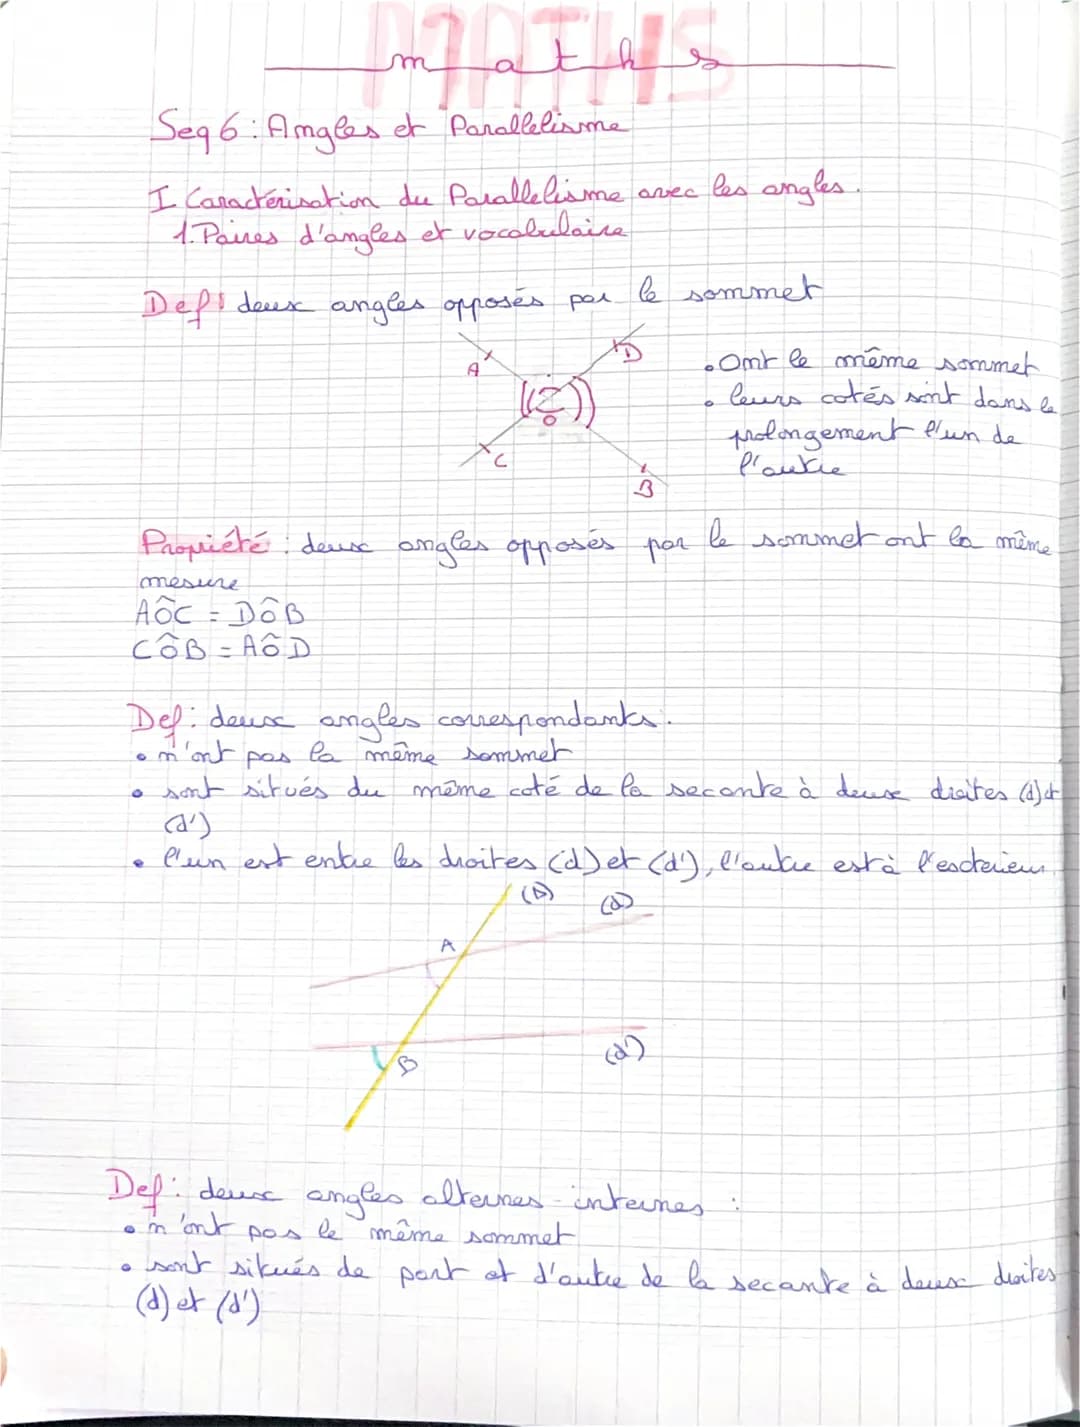 MATHS
maths
Seq 6 : Angles et Parallelisme
I Caractérisation du Parallelisme avec les angles.
1. Paires d'angles et vocabulaire
Def : deux angles opposés par le sommet
A
D
O
C
B
• Ont le même sommet
• leurs cotés sont dans le
prolongement l'un de
l'autre
Propriété : deux angles opposés par le sommet ont la même
mesure
AÔC = DÔB
CÔB = AÔD
Def : deux angles correspondants.
• n'ont pas la même sommet
• sont situés du même coté de la secante à deux droites (d) et
(d')
• l'un est entre les droites (d) et (d'), l'autre est à l'exterieur
(Δ)
(d)
A
(d')
B
Def : deux angles alternes-internes :
• n'ont pas le même sommet
• sont situés de part et d'autre de la secante à deux droites
(d) et (d')